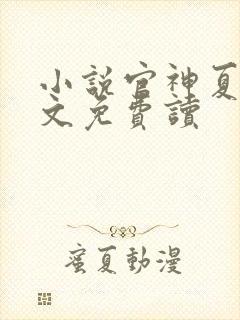 小說官神夏
文免費讀
蜜夏動漫